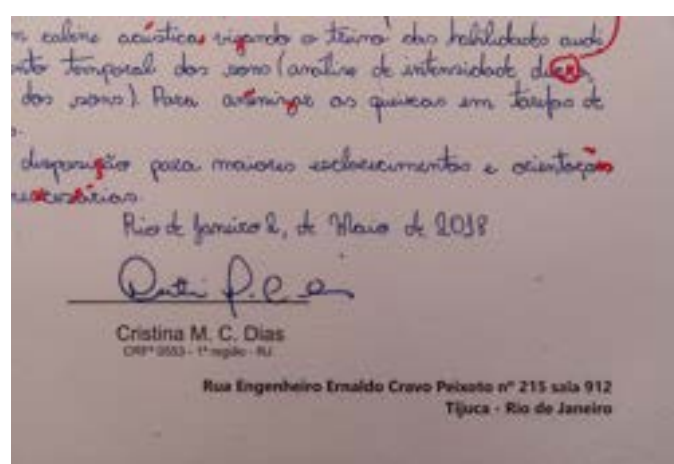 cabine acústicas vizando o treino das habilidades audi
nto temporal dos sons (análise de intensidade,
dos sons). Para as queixas em tarefas de
disposição para maiores esclarecimentos e orientação
necessárias.
Rio de Janeiro 2, de Maio de 2018
Cristina M. C. Dias
CRFª 0553 - 1ª região - RJ
Rua Engenheiro Ernaldo Cravo Peixoto nº 215 sala 912
Tijuca - Rio de Janeiro